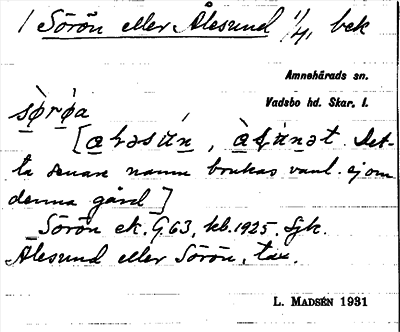 1 Sörön eller Ålesund 1/41 bek
Amnehärads sn.
Vadsbo hd. Skar. l.
Det-
ta senare namn brukas vanl. ej om
denna gård]
Sörön ek. G63, kb. 1925. Sgk.
Ålesund eller Sörön, tax.
L. MADSÉN 1931